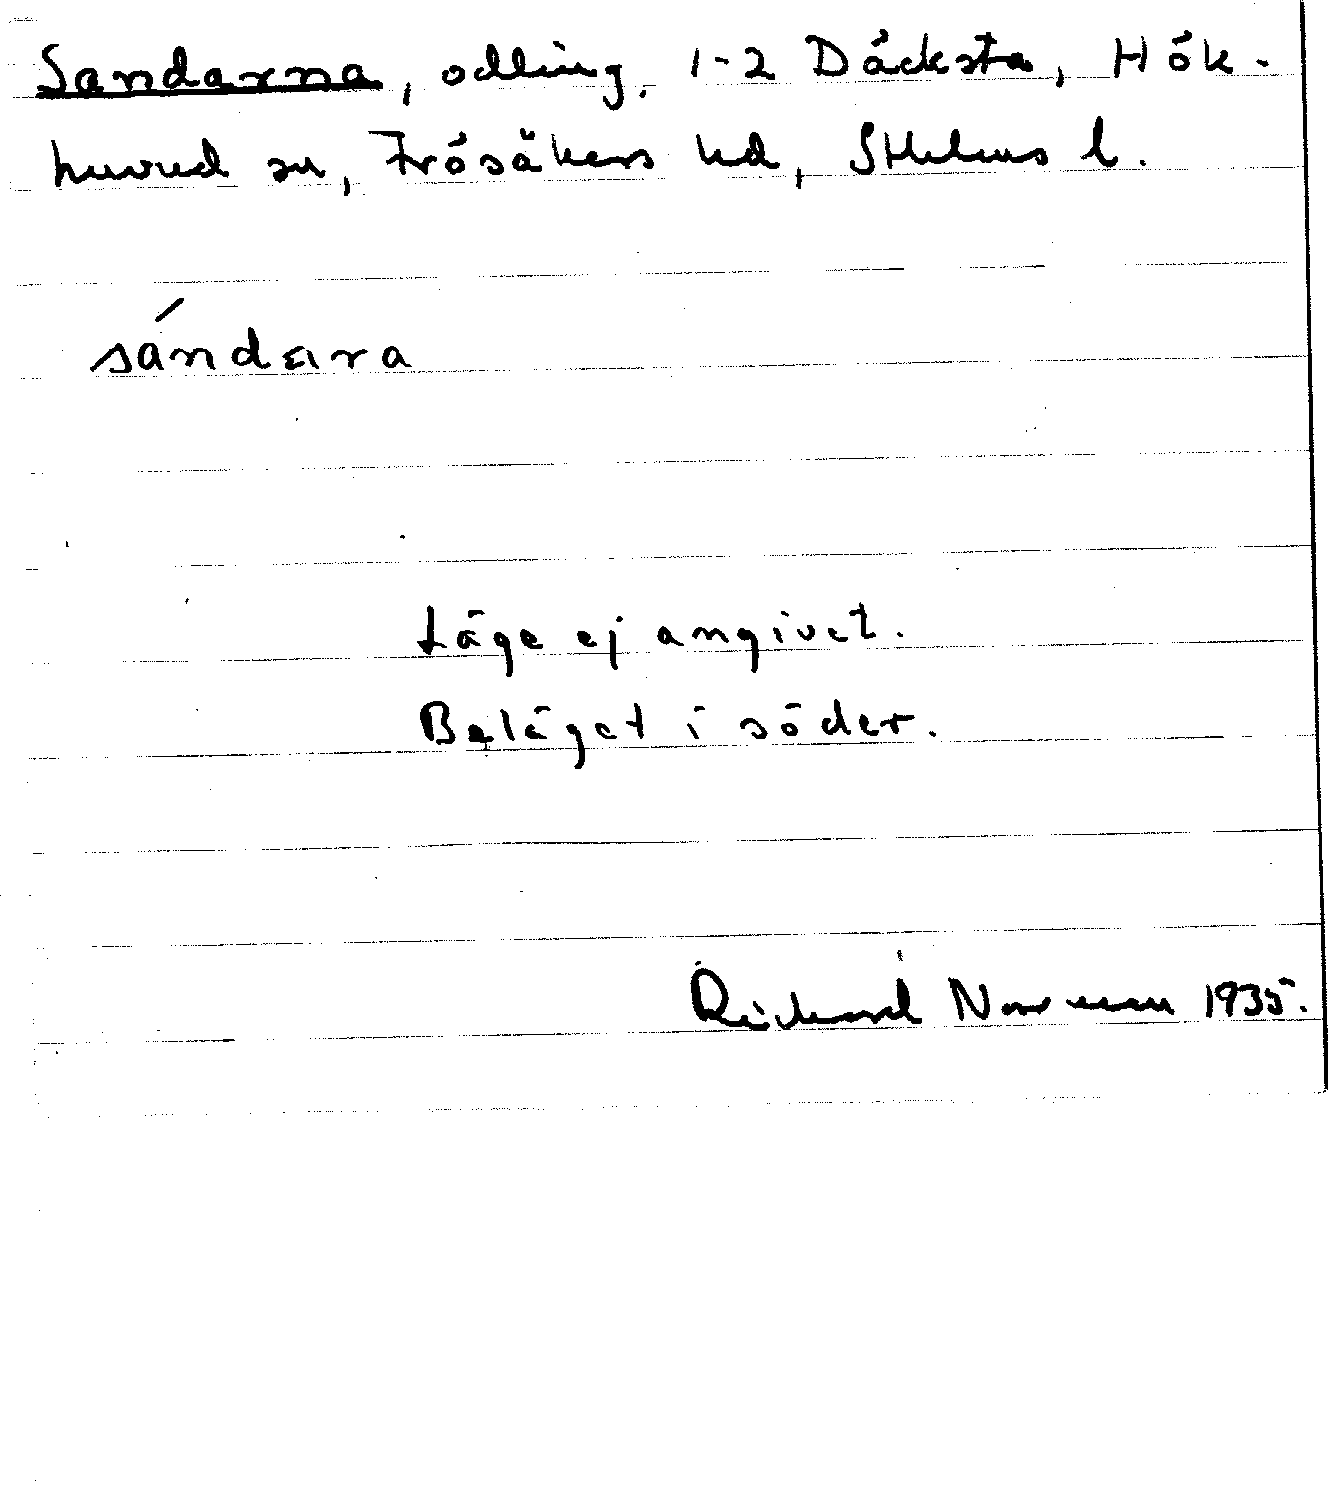 Sandarna, odling, 1-2 Däcksta, Hök-
huvud sn, Frösåkers hd, Sthlms l.
sándara
Läge ej angivet.
Beläget i söder.
Richard Norrman 1935.